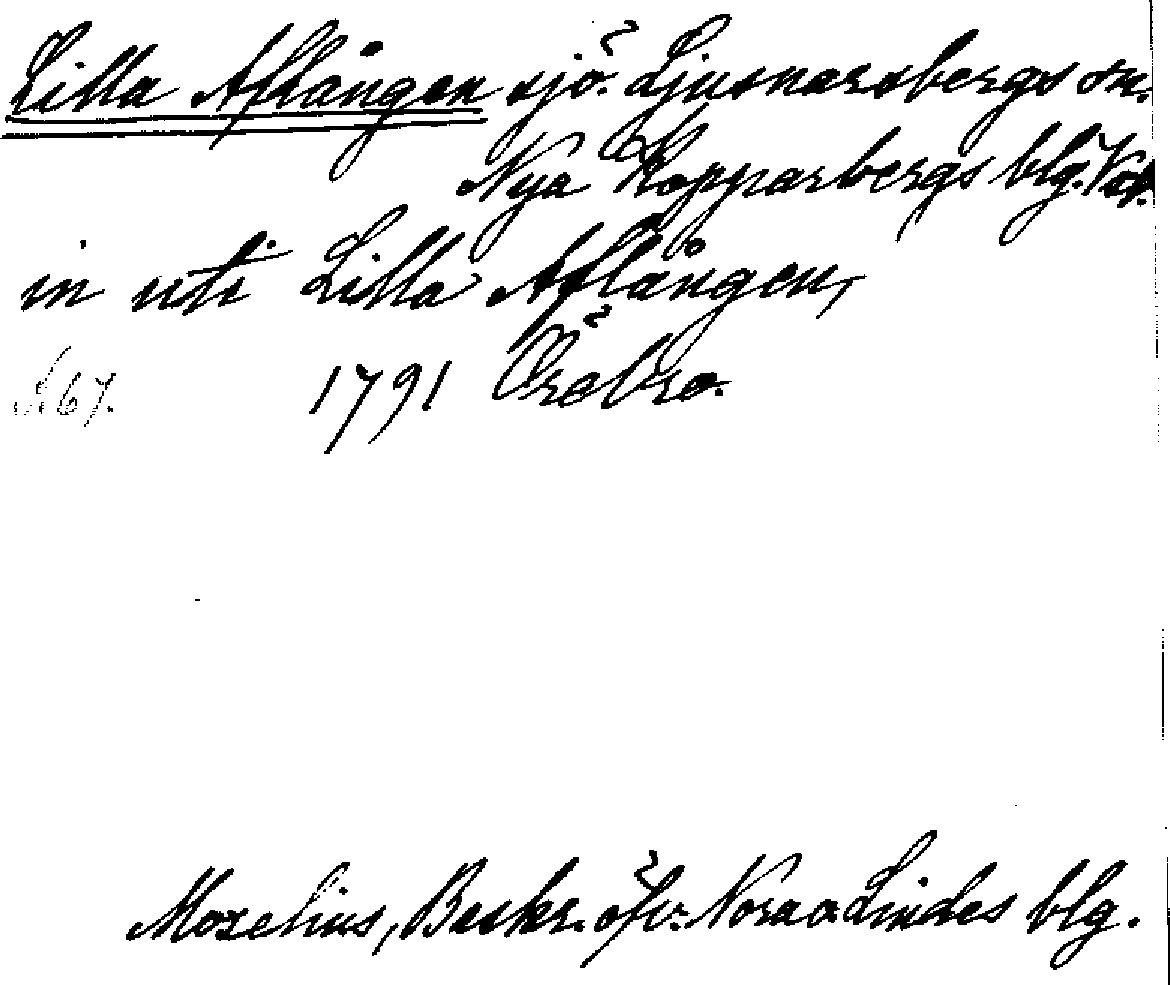 Lilla Aflången sjö. Ljusnarsbergs sn.
Nya Kopparbergs blg. Vstm.
in uti Lilla Aflången,
S. 67. 1791 Örebro.
Moxelius, Beskr. öfv. Nora o. Lindes blg.